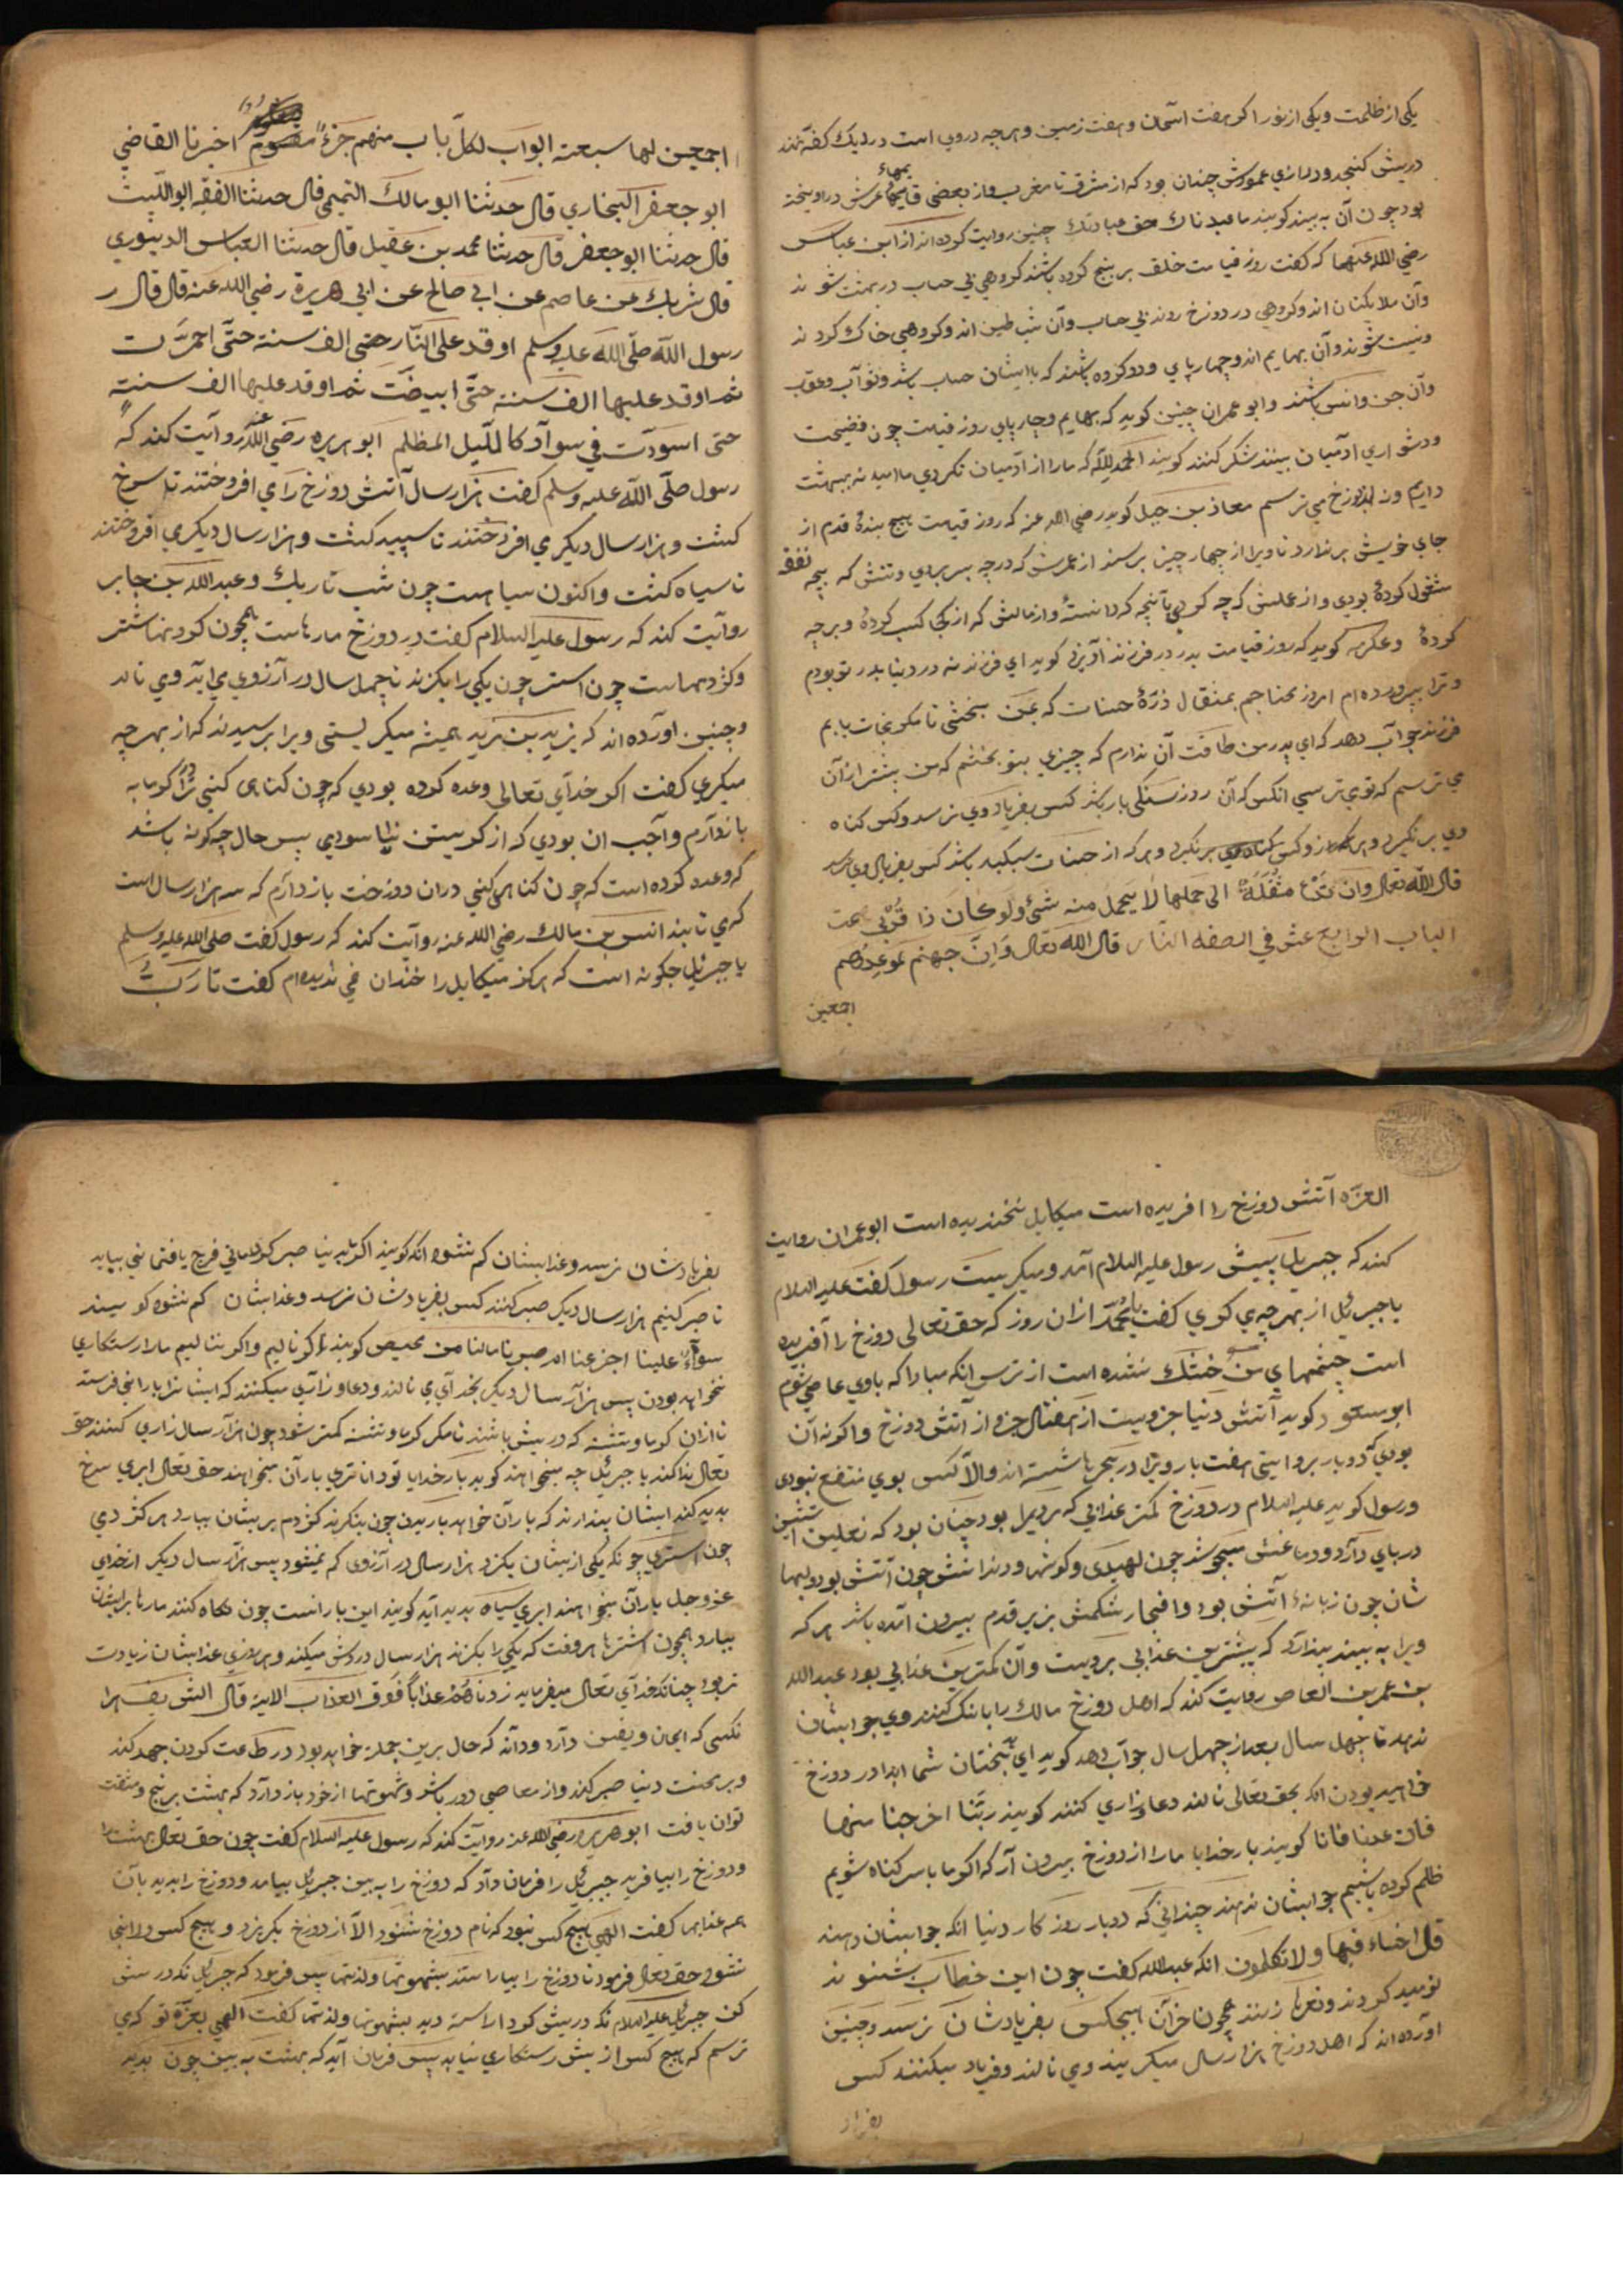 یکی از ظلمت و یکی از نور اکر هفت اسمان و هفت زمین و هرچه دروی است در یک کفه نهند
در پیش کنجد و درازی عمودش چنان بود که از مشرق تا مغرب و از بعضی عرش دراویخته
بود چون آن به بیند کویند ما عبدناک حق عبادتک چنین روایت کرده اند از ابن عباس
رضی الله عنهما که کفت روز قیامت خلق بر پنج کروه باشند کروهی بی حساب در بهشت شوند
وآن ملایکتان اند و کروهی در دوزخ روند بی حساب وآن شیاطین اند و کروهی خاک کردند
ونیست شوند وآن بهایم اند و چهارپای ودو کروه باشند که باایشان حساب باشد وثواب وعقاب
وآن جن وانس باشند وابو عمران چنین کوید که بهایم وچارپای روز قیامت چون فضیحت
ودشواری ادمیان بینند شکر کنند کویند الحمدلله که مارا از آدمیان نکردی ما امید نه ببهشت
داریم ونه از دوزخ می ترسیم معاذ بن جبل کوید رضی الله عنه که روز قیامت هیچ بنده قدم از
جای خویش برندارد تا ویرا از چهار چیز برسند از عمرش که درچه بسر بردی وتنش که بچه
مشغول کردهٔ بودی و از عملش که چه کردی بآنچه که دانستهٔ واز مالش که از کجا کسب کردهٔ وبرچه نفقه
کردهٔ وعکرمه کوید که روز قیامت پدر در فرزند آویزد کوید ای فرزند نه در دنیا پدر تو بودم
وترا بپرورده ام امروز محتاجم بمثقال ذرهٔ حسنات که بمن بخشی تا مکر نجات یابم
فرزند جواب دهد که ای پدر من طاقت آن ندارم که چیزی بتو بخشم که من بیشتر ازان
می ترسم که تو می ترسی انکس که آن روز سنکی بار باشد کس بفریاد وی نرسد وکس کناه
وی برنکیرد وهرکه از حسنات سبکبار باشد کس بفریاد وی نرسد
قال الله تعالی وان تدع مثقلة الی حملها لا یحمل منه شیٔ ولوکان ذا قربی
الباب الرابع عشر فی الصفه النار قال الله تعالی وان جهنم لموعدهم
اجمعین
اجمعین لها سبعة ابواب لکل باب منهم جزء مقسوم اخبرنا القاضی
ابو جعفر البخاری قال حدثنا ابو مالک التمیمی قال حدثنا الفقیه ابو اللیث
قال حدثنا ابو جعفر قال حدثنا محمد بن عقیل قال حدثنا العباس الدینوری
قال شریک عن عاصم عن ابی صالح عن ابی هریرة رضی الله عنه قال قال ر
رسول الله صلی الله علیه وسلم اوقد علی النار حتی الف سنة حتی احمرت
ثم اوقد علیها الف سنة حتی ابیضت ثم اوقد علیها الف سنة
حتی اسودت فی سواد کاللیل المظلم ابو هریره رضی الله عنه روایت کند که
رسول صلی الله علیه وسلم کفت هزار سال آتش دوزخ را می افروختند تا سرخ
کشت وهزار سال دیکر می افروختند تا سپید کشت وهزار سال دیکر می افروختند
تا سیاه کشت واکنون سیاهست چون شب تاریک وعبدالله بن جابر
روایت کند که رسول علیه السلام کفت در دوزخ مارهاست همچون کردنهاشتر
وکژدمهاست چون استر چون یکی را بکزند تا چهل سال در آرزوی
وچنین اورده اند که یزید بن یزید همیشه میکریستی ویرا پرسیدند که از بهر چه
میکری کفت اکر خدای تعالی وعده کرده بودی که چون کناهی کنی ترا در کرمابه
بازدارم واجب ان بودی که از کریستن نیاسودی پس حال چه کونه باشد
که وعده کرده است که چون کناهی کنی دران دوزخت بازدارم که سه هزار سال است
که می تابند انس بن مالک رضی الله عنه روایت کند که رسول کفت صلی الله علیه وسلم
یا جبرئیل چکونه است که هرکز میکایل را خندان نمی ندیده ام کفت تا رب
العزه آتش دوزخ را افریده است میکایل نخندیده است ابو عمران روایت
کند که جبریل پیش رسول علیه السلام آمد ومیکریست رسول کفت علیه السلام
یا جبرئیل از بهر چه می کری کفت یا محمد ازان روز که حق تعالی دوزخ را آفریده
است چشمهای من خشک نشده است از ترس انکه مبادا که باوی عاصی شوم
ابو سعود کوید آتش دنیا جزویست از هفتاد جزو از آتش دوزخ واکر نه آن
بودی که دوبار بروایتی هفت بار ویرا در بحر باشسته اند والا کس بوی منتفع نبودی
ورسول کوید علیه السلام در دوزخ کمتر عذابی که مردیرا بود چنان بود که نعلین آتشین
در پای دارد ودماغش میجوشد چون ودندانش چون آتش بود ولبها
شان چون زبانهٔ آتش بود شکمش بزیر قدم بیرون آمده باشد هرکه
ویرا به بیند پندارد که بیشترین عذابی برویست وآن کمترین عذابی بود عبدالله
بن عمر بن العاص روایت کند که اهل دوزخ مالک را بانک کنند وی جواب ایشان
ندهد تا چهل سال بعد از چهل سال جواب دهد کوید ای بدبختان شما ابدا در دوزخ
خواهید بودن انکه بحق تعالی نالند دعا وزاری کنند کویند ربنا اخرجنا منها
فان عدنا فانا کویند بار خدایا مارا از دوزخ بیرون آر که اکر ما باسر کناه شویم
ظلم کرده باشیم جواب ایشان ندهند چندانی که دوبار روزکار دنیا انکه جواب ایشان دهند
قل اخساء فیها ولا تکلمون انکه عبدالله کفت چون این خطاب بشنوند
نومید کردند ونعرها زنند همچون خران هیچکس بفریادشان نرسد وچنین
آورده اند که اهل دوزخ هزار سال میکریند ومی نالند وفریاد میکنند کس
بفریاد
بفریادشان نرسد وعذابشان کم نشود انکه کویند اکر ما بدنیا صبر کردمانی فرج یافتمانی بیاید
تا صبر کنیم هزار سال دیکر صبر کنند کس بفریادشان نرسد وعذابشان کم نشود کویند
سواء علینا اجزعنا ام صبرنا مالنا من محیص کویند اکر نالیم واکر ننالیم مارا رستکاری
نخواهد بودن پس هزار سال دیکر بخدای می نالند ودعا وزاری میکنند که ایشانرا باران فرستد
تا ازان کرما وتشنه که در پیش باشند تا مکر کرما وتشنه کمتر شود چون هزار سال زاری کنند حق
تعالی ندا کند یا جبرئیل چه میخواهند کوید بار خدایا تو داناتری باران میخواهند حق تعالی ابری سرخ
پدید کند ایشان پندارند که باران خواهد باریدن چون بنکرند کژدم بریشان ببارد هر کژدمی
چون استری چونکه یکی ازیشان بکزد هزار سال در آرزوی کم نمیشود پس هزار سال دیکر از خدای
عز وجل باران میخواهند ابری سیاه پدید آید کویند این بارانست چون نکاه کنند مارها بریشان
ببارد همچون اشترها هروقت که یکی را بکزند هزار سال دردش میکند وهر روزی عذابشان زیادت
تر بود چنانکه خدای تعالی میفرماید زدناهم عذابا فوق العذاب الایة قال الشیخ
نکسی که ایمان ویقین دارد وداند که حال برین جمله خواهد بود در طاعت کردن جهد کند
وبر محنت دنیا صبر کند واز معاصی دور باشد وشهوتها از خود باز دارد که بهشت برنج ومشقت
توان یافت ابو هریره رضی الله عنه روایت کند که رسول علیه السلام کفت چون حق تعالی بهشت را
ودوزخ را بیافرید جبرئیل را فرمان داد که دوزخ را به بین جبرئیل بیامد ودوزخ را بدید باآن
همه عذابها کفت الهی هیچکس نبود که نام دوزخ شنود الا از دوزخ بکریزد وهیچ کس
نشود حق تعالی فرمود تا دوزخ را بیاراستند بشهوتها ولذتها پس فرمود که جبرئیل نکه در پیش
کن جبرئیل علیه السلام نکه در پیش کرد اراسته دید بشهوتها ولذتها کفت الهی بعزة تو که می
ترسم که هیچ کس از پیش رستکاری نیابد پس فرمان آید که بهشت به بین چون بدید